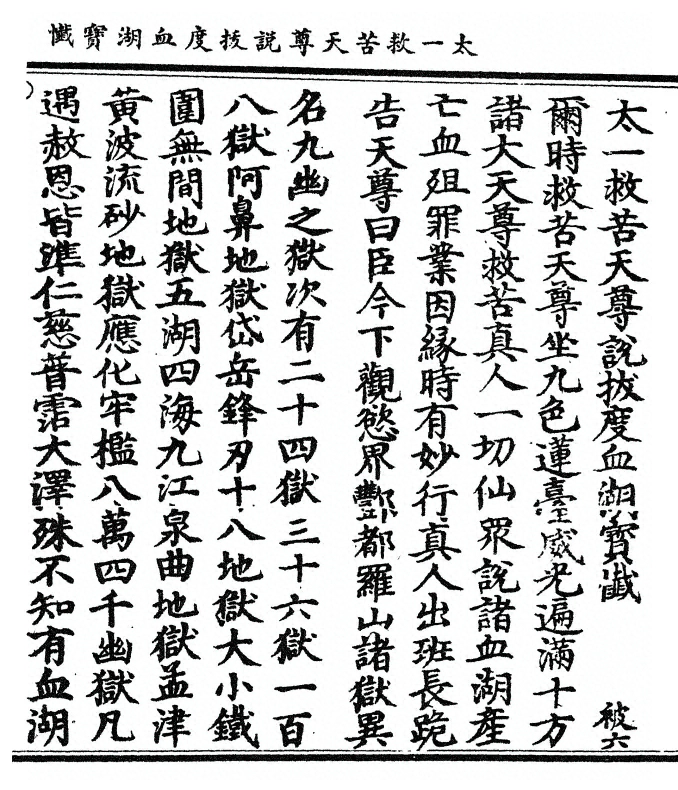 太一救苦天尊說拔度血湖寶懺
太一救苦天尊說拔度血湖寶懺 被六
爾時救苦天尊坐九色蓮臺威光遍滿十方
諸大天尊救苦真人一切仙眾說諸血湖產
亡血殂罪業因緣時有妙行真人出班長跪
告天尊曰臣今下觀慾界酆都羅山諸獄異
名九幽之獄次有二十四獄三十六獄一百
八獄阿鼻地獄岱岳鋒刃十八地獄大小鐵
圍無間地獄五湖四海九江泉曲地獄孟津
黃波流砂地獄應化牢檻八萬四千幽獄凡
遇赦恩皆準仁慈普霑大澤殊不知有血湖